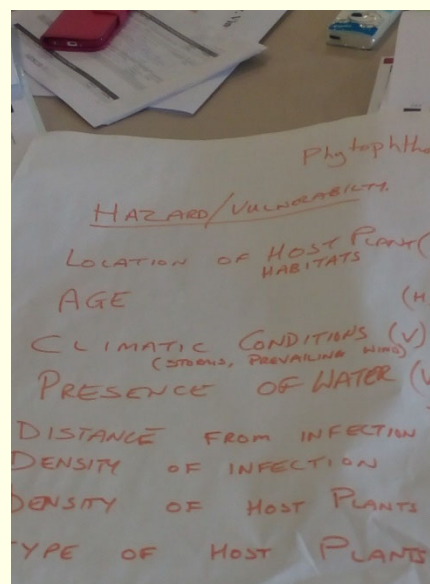 Phytophtho
HAZARD/VULNERABILTY.
LOCATION OF HOST PLANT (
HABITATS
AGE (H
CLIMATIC CONDITIONS (V)
(STORMS, PREVAILING WIND)
PRESENCE OF WATER (V
DISTANCE FROM INFECTION
DENSITY OF INFECTION
DENSITY OF HOST PLANTS
TYPE OF HOST PLANTS